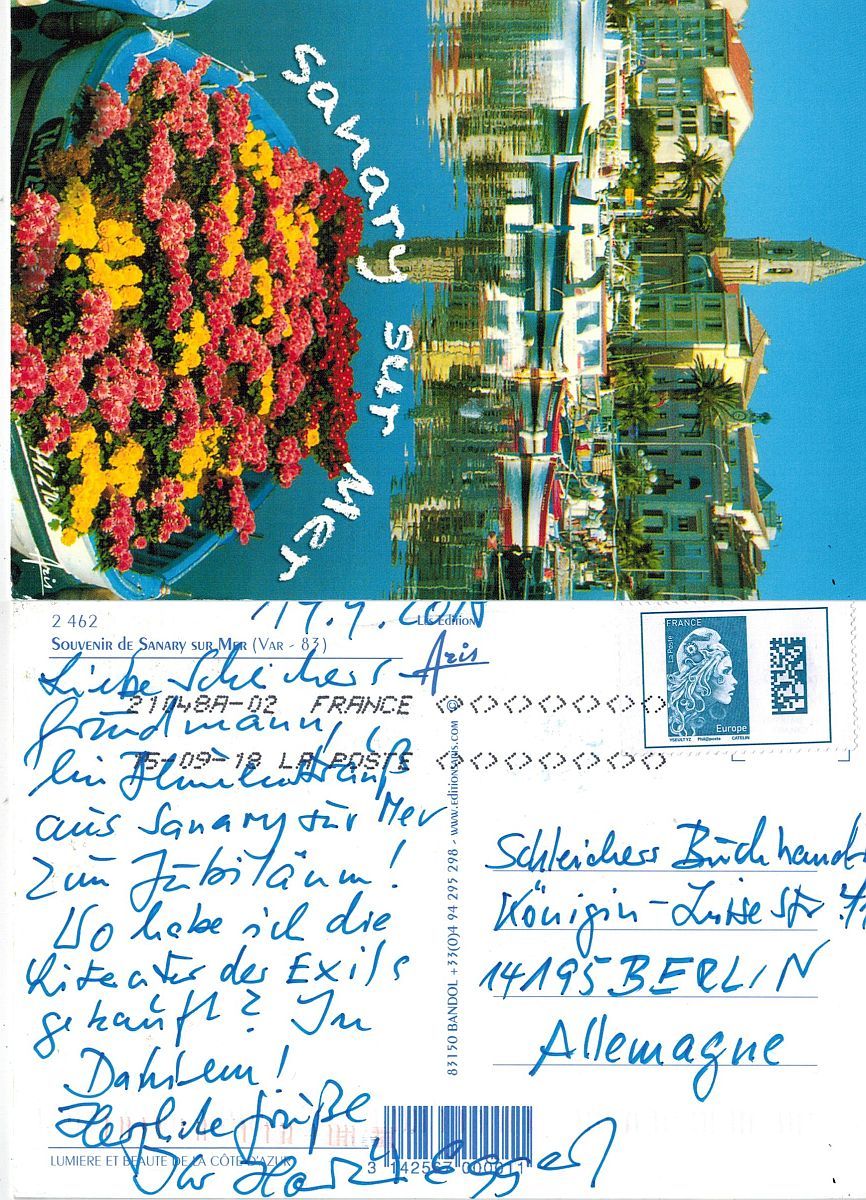 Sanary sur Mer
Aris
2 462
Les Editions
SOUVENIR DE SANARY SUR MER (VAR - 83)
Aris
FRANCE
La Poste
Europe
YSEULTYZ Phil@poste CATELIN
21048A-02 FRANCE
15-09-18 LA POSTE
Liebe Schleichers
Grundmann,
ein Blumenstrauß
aus Sanary sur Mer
zum Jubiläum!
Wo habe ich die
Literatur des Exils
gekauft? In
Dahlem!
Herzliche Grüße
Ihr
83150 BANDOL +33(0)4 94 295 298 - www.editionsaris.com ©
Schleichers Buchhandl
Königin-Luise Str.
14195 BERLIN
Allemagne
LUMIERE ET BEAUTE DE LA CÔTE D'AZUR
3 142567 000011